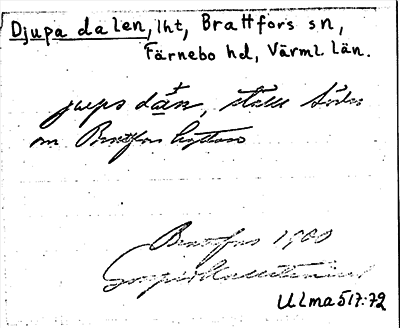 Djupa dalen, lht, Brattfors sn,
Färnebo hd, Värml. län.
ställe söder
om Brattfors hyttan
Brattfors 1900
Ulma 517:72